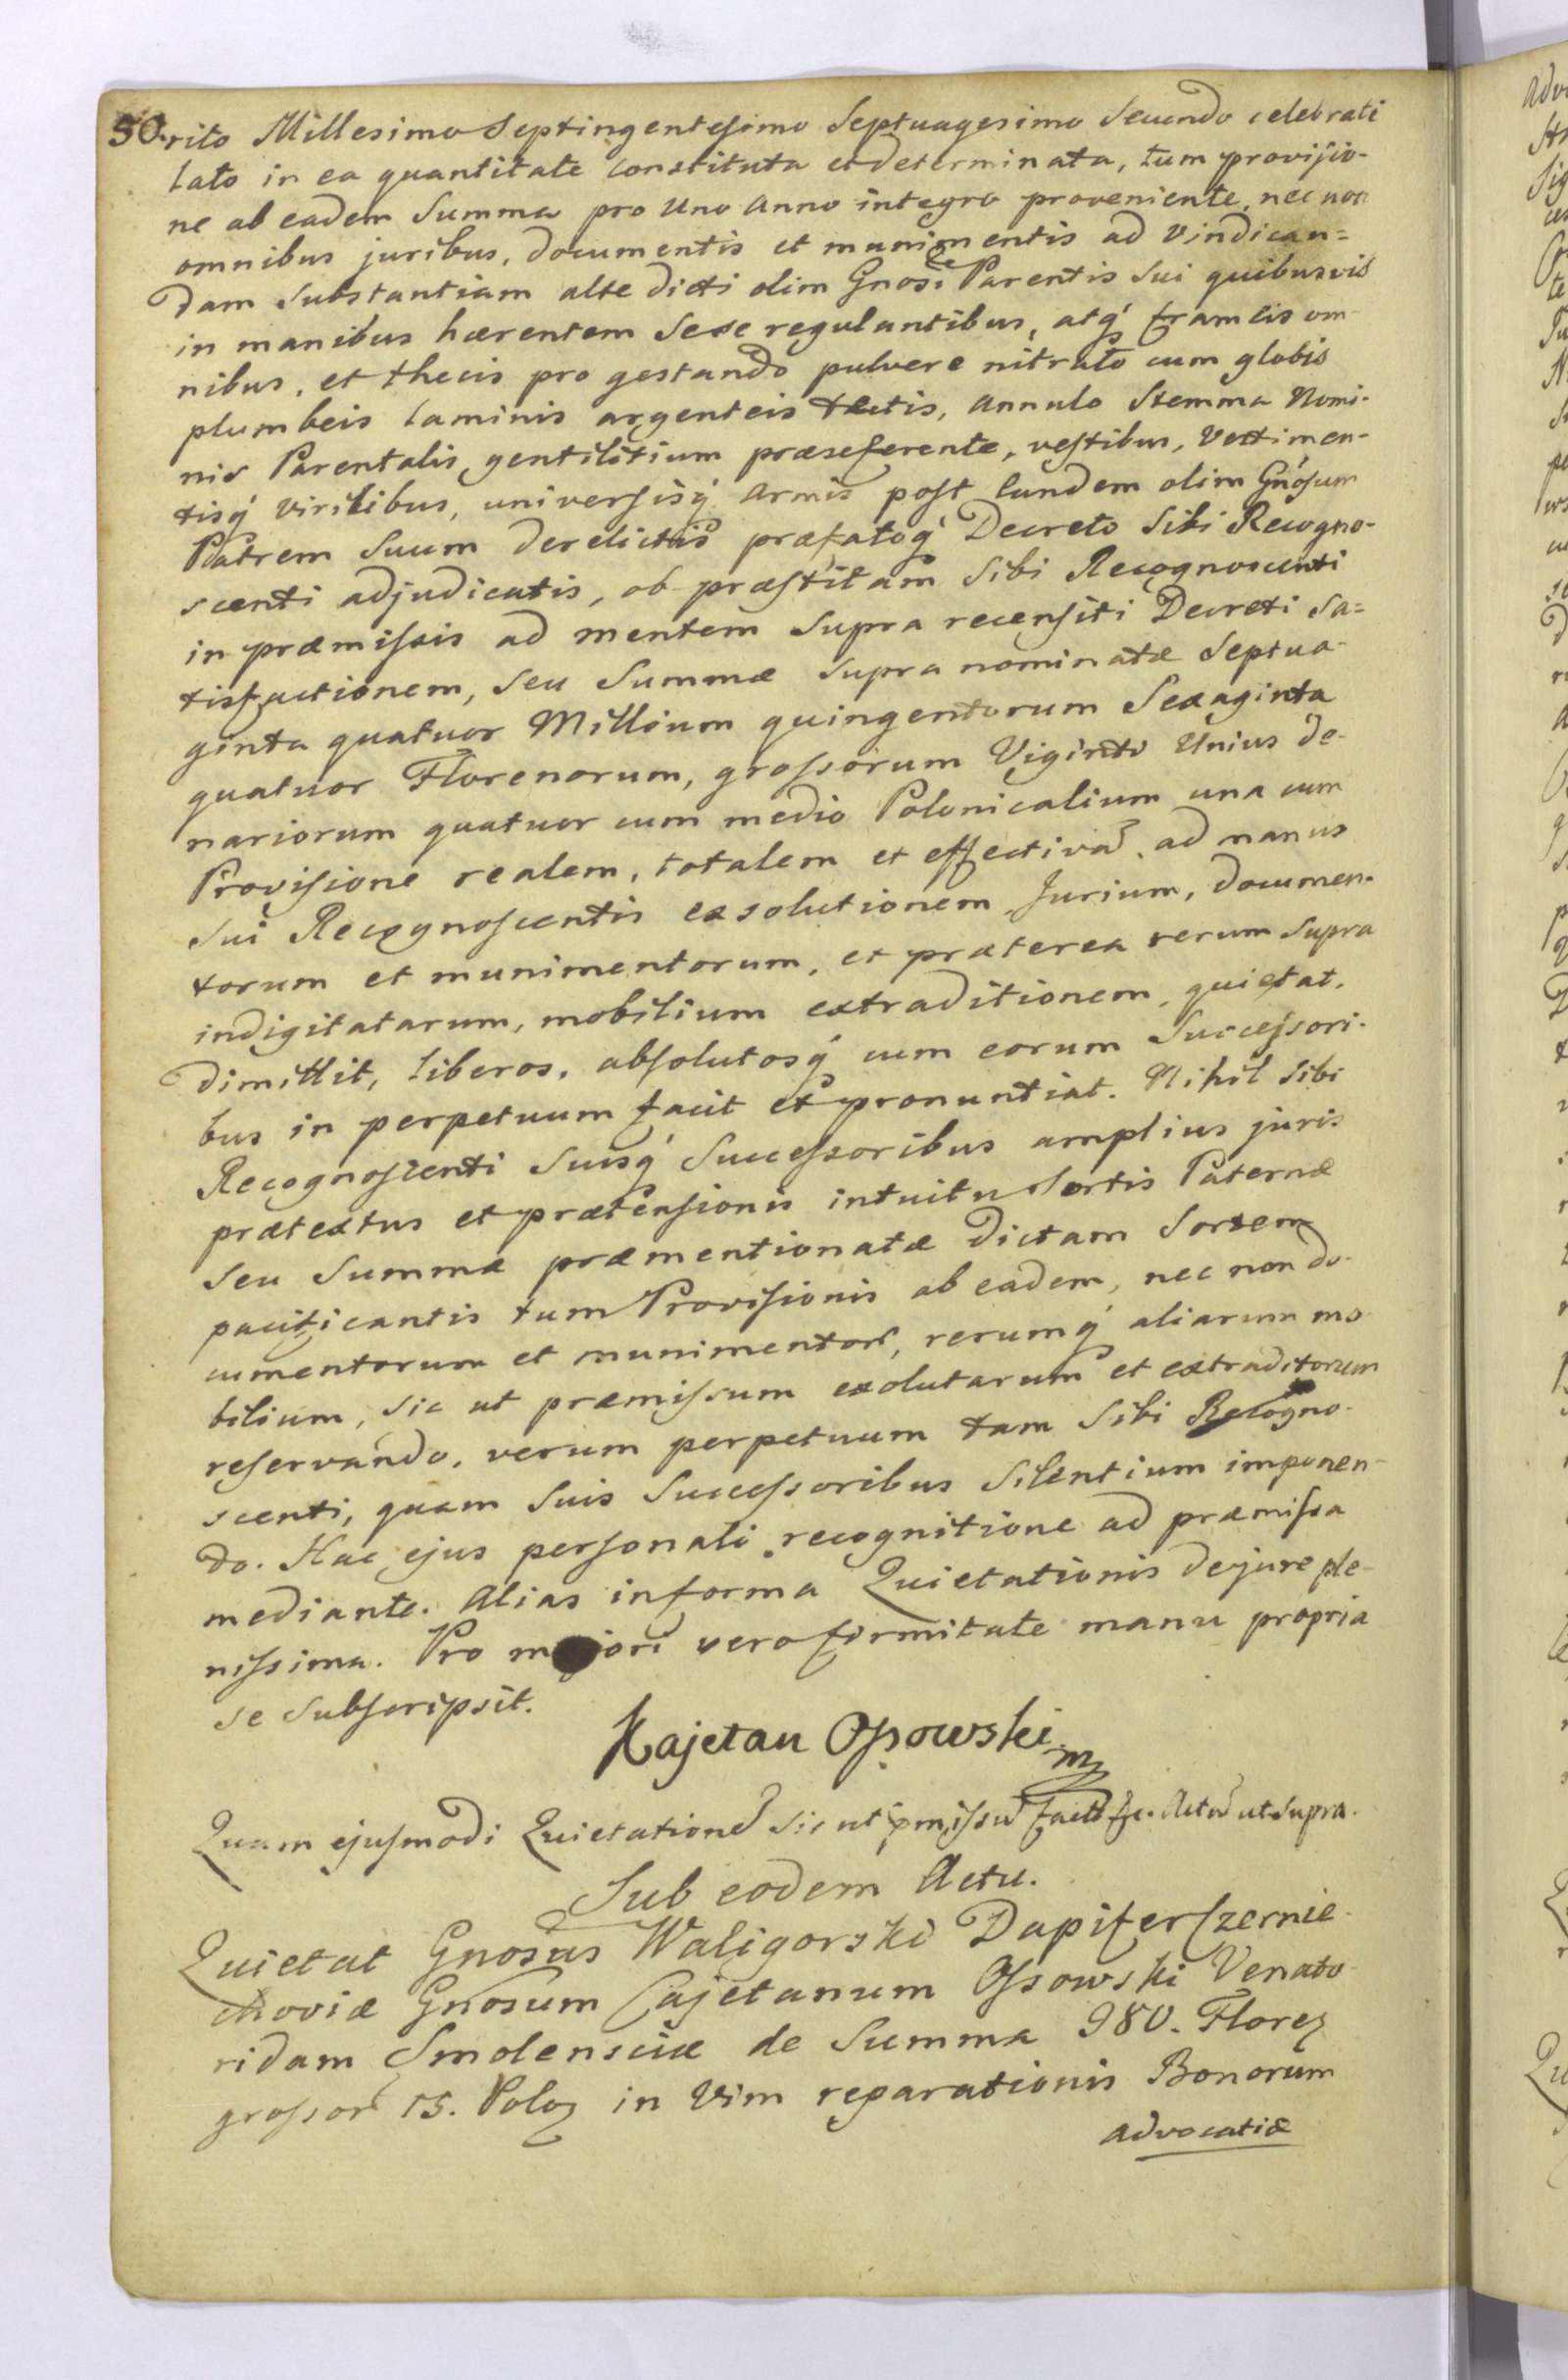 50. rito Millesimo Septingentesimo Septuagesimo Secundo celebrati
lato in ea quantitate constituta et determinata, tum provisio-
ne ab eadem Summa pro Uno Anno integro proveniente, nec non
omnibus juribus, documentis et munimentis ad Vindican=
dam Substantiam alte dicti olim Gnosi Parentis Sui quibusvis
in manibus hærentem Sese regulantibus, atq́ frameis om-
nibus, et thecis pro gestando pulvere nitrato cum globis
plumbeis laminis argenteis tectis, Annulo Stemma Nomi-
nis Parentalis gentilitium præseferente, vestibus, Vestimen-
tisq́ virilibus, universisq́ Armis post Eundem olim Gnosum
Patrem Suum derelictis præfatoq́ Decreto Sibi Recogno-
scenti adjudicatis, ob præstitam Sibi Recognoscenti
in præmissis ad mentem Supra recensiti Decreti Sa=
tisfactionem, seu Summæ Supra nominatæ Septua-
ginta quatuor Millium quingentorum Sexaginta
quatuor Florenorum, grossorum Viginti Unius de-
nariorum quatuor cum medio Polonicalium una cum
Provisione realem, totalem et effectivã, ad manus
Sui Recognoscentis exsolutionem Jurium, documen-
torum et munimentorum, et præterea rerum Supra
indigitatarum, mobilium extraditionem, quietat,
dimittit, liberos, absolutosq́ cum eorum Successori-
bus in perpetuum facit et pronuntiat. Nihil Sibi
Recognoscenti Suisq́ Successoribus amplius juris
prætextus et prætensionis intuitu Sortis Paternæ
Seu Summæ præmentionatæ dictam Sortem
pacificantis tum Provisionis ab eadem, nec non do-
cumentorum et munimentorũ, rerumq́ aliarum mo-
bilium, sic ut præmissum exolutarum et extraditorum
reservando, verum perpetuum tam Sibi Recogno-
scenti, quam Suis Successoribus Silentium imponen-
do. Hac ejus personali recognitione ad præmissa
mediante. Alias in forma Quietationis de jure ple-
nissima. Pro majori vero firmitate manu propria
se Subscripsit.
Kajetan Ossowski mp
Quam ejusmodi Quietationẽ sic ut p̃missũ factã &c. Actũ ut Supra.
Sub eodem Actu.
Quietat Gnosus Waligorski Dapifer Czernie-
choviæ Gnosum Cajetanum Ossowski Venato-
ridam Smolensciæ de Summa 980. Florez
grossorũ 15. Poloz in Vim reparationis Bonorum
Advocatiæ